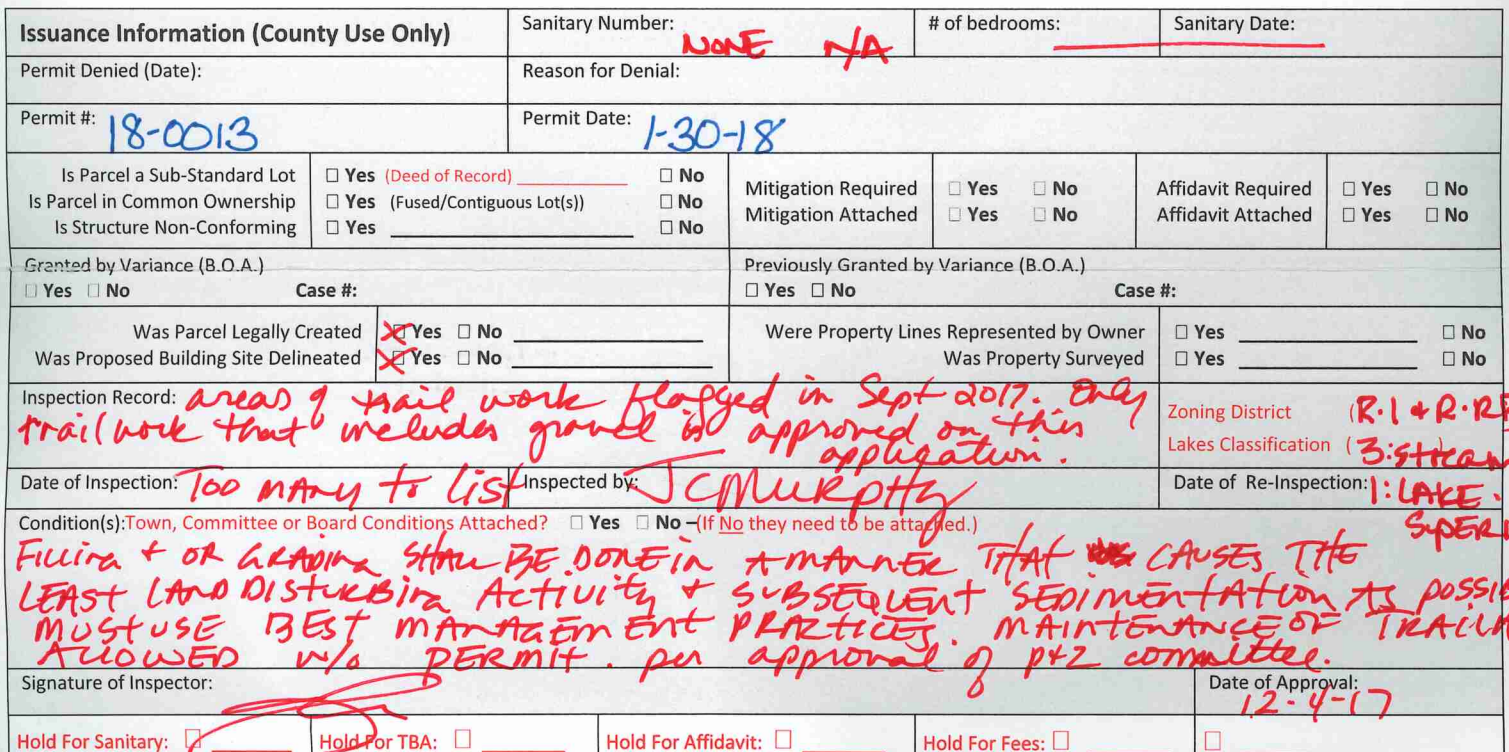 Issuance Information (County Use Only) Sanitary Number: NONE N/A # of bedrooms: Sanitary Date:
Permit Denied (Date): Reason for Denial:
Permit #: 18-0013 Permit Date: 1-30-18
Is Parcel a Sub-Standard Lot ☐ Yes (Deed of Record) ☐ No
Is Parcel in Common Ownership ☐ Yes (Fused/Contiguous Lot(s)) ☐ No
Is Structure Non-Conforming ☐ Yes ☐ No
Mitigation Required ☐ Yes ☐ No
Mitigation Attached ☐ Yes ☐ No
Affidavit Required ☐ Yes ☐ No
Affidavit Attached ☐ Yes ☐ No
Granted by Variance (B.O.A.)
☐ Yes ☐ No Case #:
Previously Granted by Variance (B.O.A.)
☐ Yes ☐ No Case #:
Was Parcel Legally Created ☒ Yes ☐ No
Was Proposed Building Site Delineated ☒ Yes ☐ No
Were Property Lines Represented by Owner ☐ Yes ☐ No
Was Property Surveyed ☐ Yes ☐ No
Inspection Record: areas of trail work flagged in Sept 2017. Only
trail work that includes gravel is approved on this
application.
Zoning District (R-1 + R-RB
Lakes Classification ( 3:stream
Date of Inspection: Too MANY to list Inspected by: JCMURPHY Date of Re-Inspection: 1: LAKE
SUPERI
Condition(s): Town, Committee or Board Conditions Attached? ☐ Yes ☐ No –(If No they need to be attached.)
Filling + OR GRADING SHALL BE DONE in A MANNER THAT CAUSES THE
LEAST LAND DISTURBing Activity + SUBSEQUENT SEDIMENTATION AS POSSIB
MUST USE BEST MANAGEMENT PRACTICES. MAINTENANCE OF TRAIL
ALLOWED w/o PERMIT. per approval of p+z committee.
Signature of Inspector: Date of Approval:
12-4-17
Hold For Sanitary: ☐ Hold For TBA: ☐ Hold For Affidavit: ☐ Hold For Fees: ☐ ☐